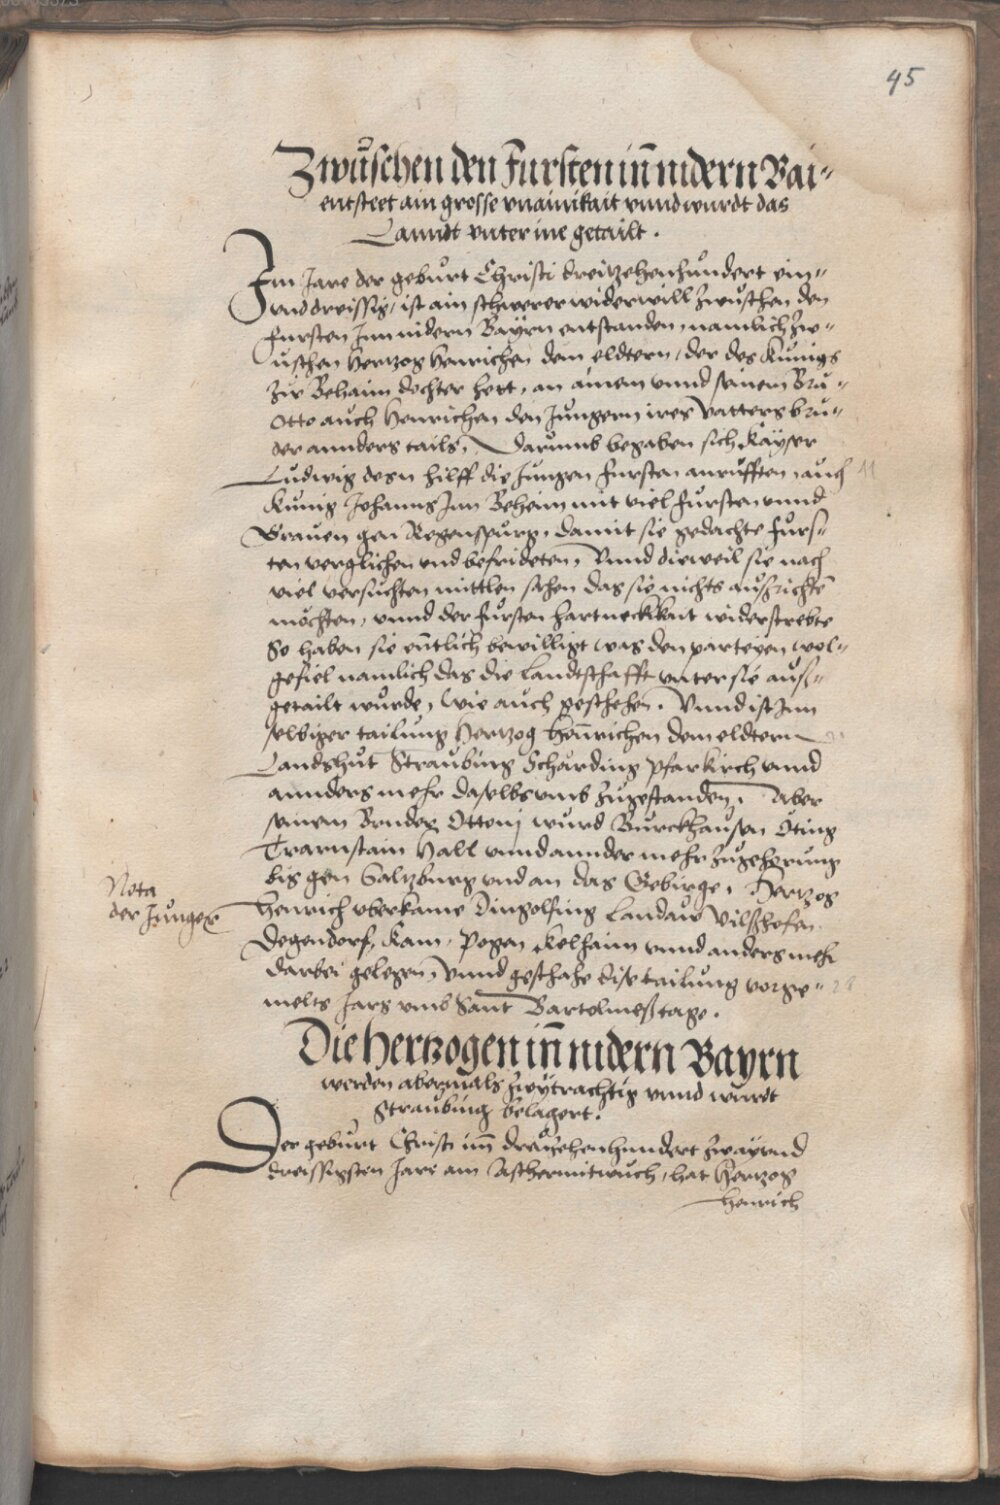 45
Zwuschen den Fursten inn nidern Bai-
entsteet ain grosse vnainikait vnnd wurdt das
Lanndt vnter ine getailt.
Im Jare der geburt Christi dreitzehenhundert ein-
vnd dreissig, ist ain schwerer widerwill zwuschen den
fursten Inn nidern Bayrn entstanden, namlich zw-
uschen Hertzog Henrichen dem eldtern, der des Kunigs
zu Behaim dochter hett, an ainem vnnd seinem Bru-
Otto auch Henrichen den Jungern ires vatters bru-
der annders tails. Darumb begaben sich Kayser
Ludwig des hilff die Jungen fursten anrufften, auch
Kunig Johanns Inn Beheim mit viel fursten vnnd
Grauen gen Regenspurg, damit sie gedachte furs-
ten verglichen vnd befrideten, Vnnd dieweil sie nach
viel versuchten mittlen sahen das sie nichts außrichten
mochten, vnnd der fursten hartneckikait widerstrebte
So haben sie entlich bewilligt was den parteyen wol-
gefiel namlich das die Landtschafft vnter sie auß-
getailt wurde, wie auch geschehen. Vnnd ist Inn
selbiger tailung Hertzog Henrichen dem eldtern
Landshut Straubing Scharding Pfarkirch vnnd
annders mehr daselbs vmb zugestanden. Aber
seinem Bruder Ottoni wurd Burckhausen Oting
Trarnstain Hall vnnd annder mehr zugehorung
bis gen Saltzburg vnd an das Gebirge. Hertzog
Nota
der Junger
Henrich vberkame Dingolfing Landaw Vilshofen
Degendorf, Kam, Pogen Kelhaim vnnd anders mehr
darbei gelegen, Vnnd geschahe dise tailung vorge-
melts Jars vmb Sant Bartolmeßtage.
Die Hertzogen inn nidern Bayrn
werden abermals zwytrachtig vnnd wurdt
Straubing belagert.
Der geburt Christi im dreyzehenhundert zway vnd
dreissigsten Jare am Aschermitwuch, hat Hertzog
Henrich